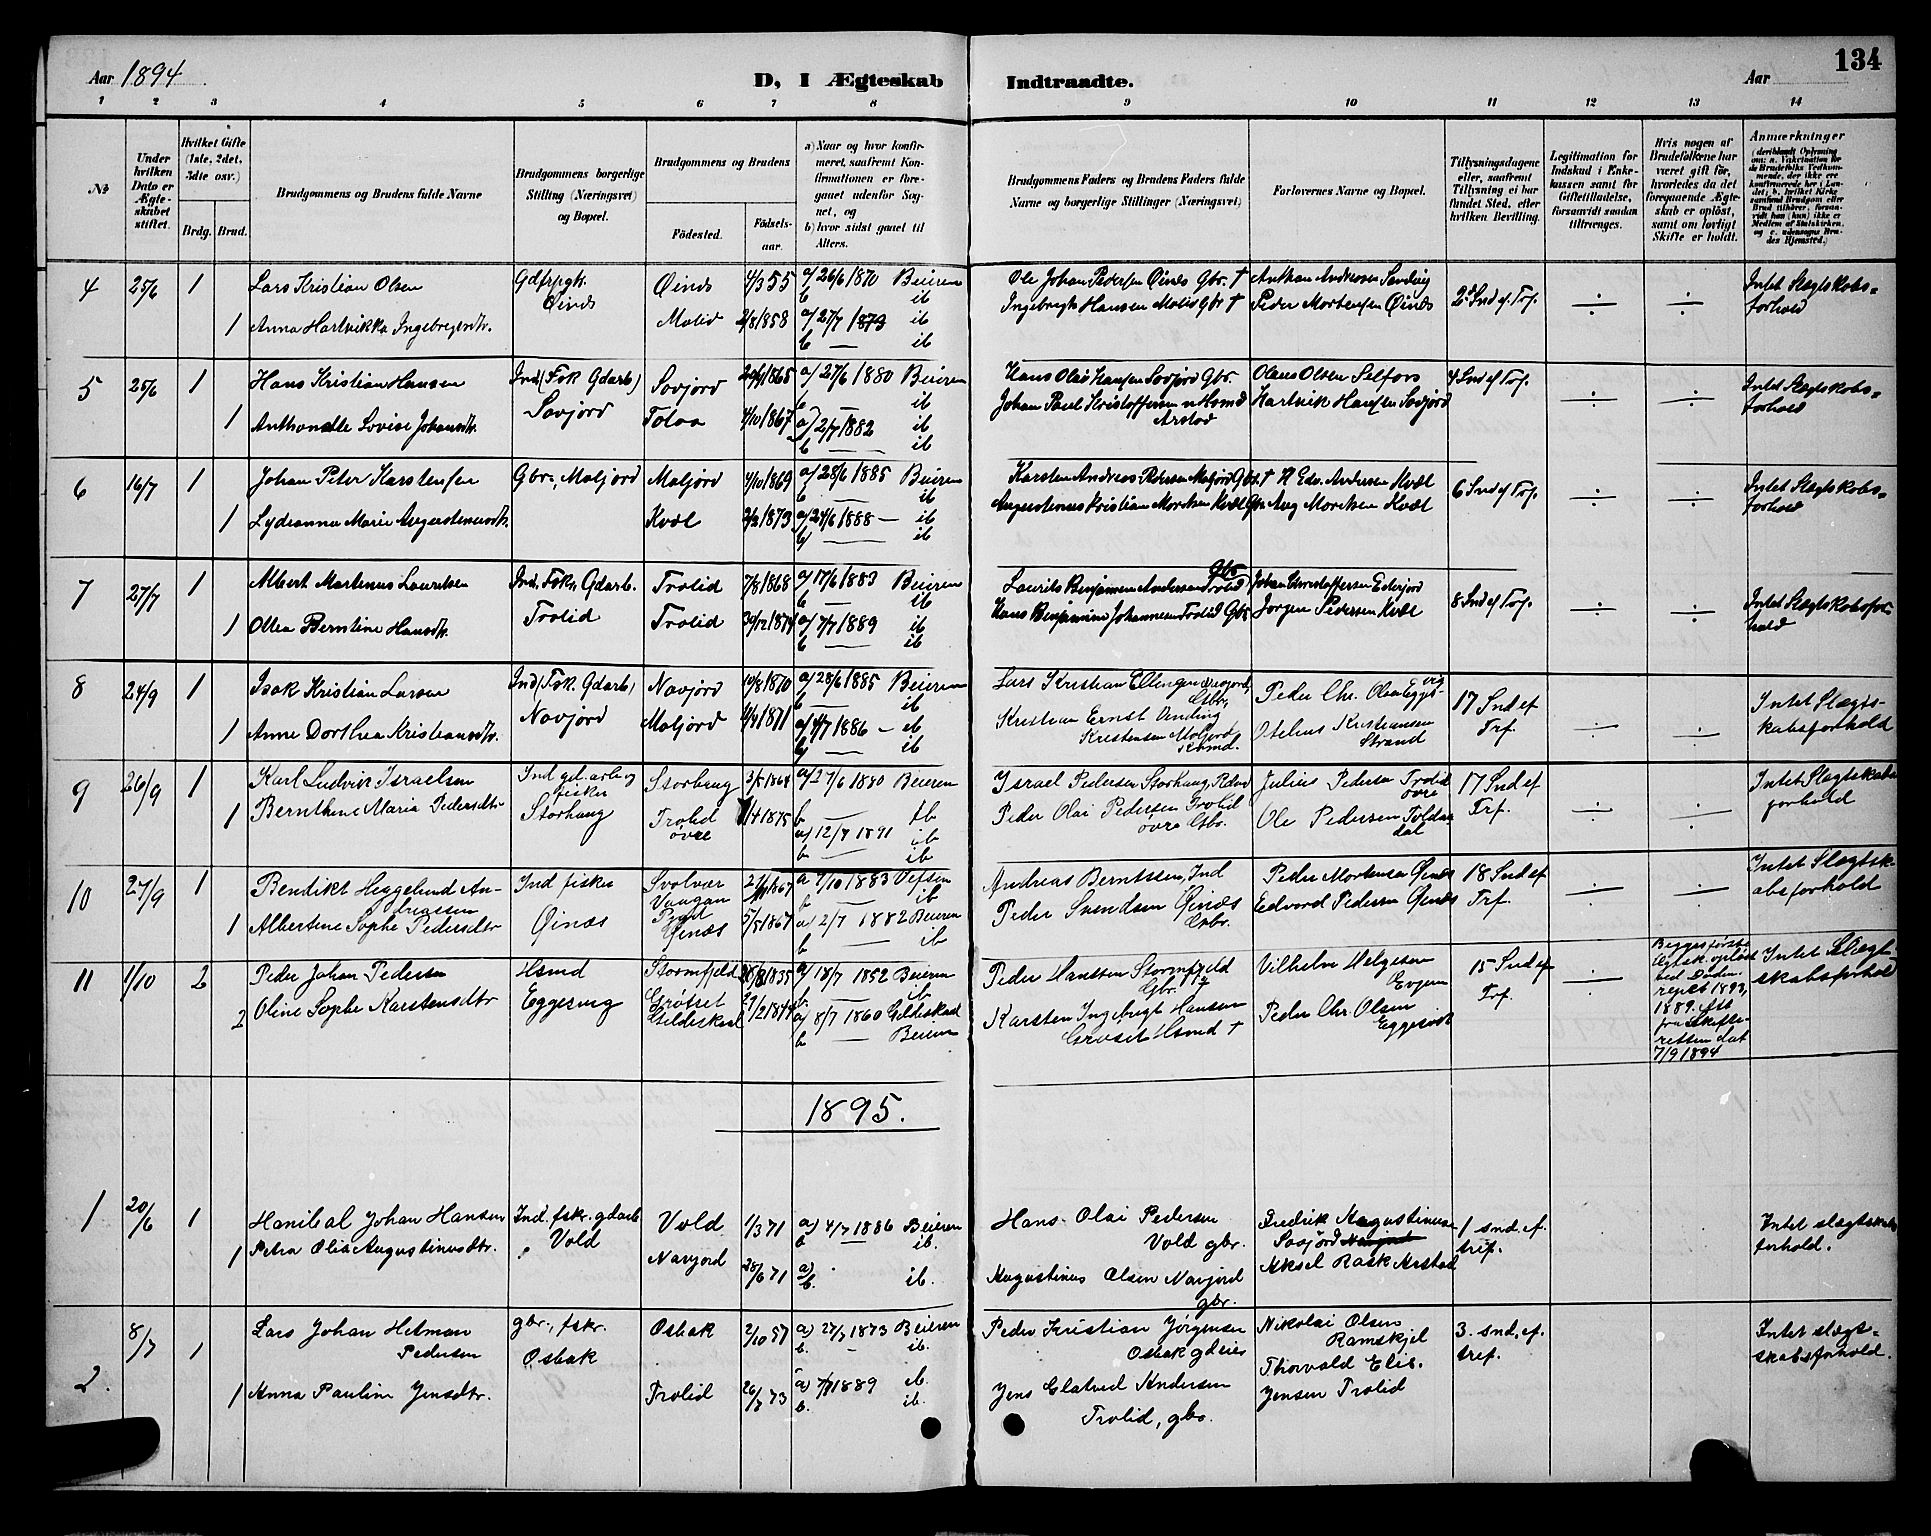 134
Aar 1894
D, I Ægteskab Indtraadte.
Aar
1 2 3 4 5 6 7 8 9 10 11 12 13 14
№
Under hvilken Dato er Ægteskabet stiftet.
Hvilket Gifte (1ste, 2det, 3die osv.)
Brdg. Brud.
Brudgommens og Brudens fulde Navne
Brudgommens borgerlige Stilling (Næringsvei) og Bopæl.
Brudgommens og Brudens
Fødested.
Fødselsaar.
a) Naar og hvor konfirmeret, saafremt Konfirmationen er foregaaet udenfor Sognet, og
b) hvor sidst gaaet til Alters.
Brudgommens Faders og Brudens Faders fulde Navne og borgerlige Stillinger (Næringsvei)
Forlovernes Navne og Bopæl.
Tillysningsdagene eller, saafremt Tillysning ei har fundet Sted, efter hvilken Bevilling.
Legitimation for Indskud i Enkekassen samt for Giftetilladelse, forsaavidt saadan tiltrænges.
Hvis nogen af Brudefolkene har været gift før, hvorledes da det foregaaende Ægteskab er opløst, samt om lovligt Skifte er holdt.
Anmærkninger
4 25/6 1 Lars Kristian Olsen Øinæs 4/3 55 a/ 26/6 1870 Beieren
Øinæs b ib
1 Anna Hartvikka Ingebregtsdtr. Molid 2/8 1858 a/ 27/7 1873 ib
b — ib
Ole Johan Pedersen Øinæs Gbr. †
Ingebregt Hansen Molid Gbr †
Peder Mortensen Øinæs
2d Snd ef Tref.
÷ ÷
Intet Slægtskabs=
forhold
5 25/6 1 Hans Kristian Hansen Ind (Fsk Gdarb) Sovjord 1865 a/ 27/6 1880 Beieren
Sovjord b — ib
1 Anthonette Lovise Johansdtr. Tolaa 4/10 1867 a) 2/7 1882 ib
b — ib
Hans Olai Hansen Sovjord Gbr.
Johan Paul Kristoffersen Hsmd
Arstad
Olaus Olsen Selfors
Hartvik Hansen Sovjord
4 Snd ef Tref.
÷ ÷
Intet Slægtskabs=
forhold
6 16/7 1 Johan Peter Karstensen Gbr., Moljord Moljord 4/10 1869 a/ 28/6 1885 Beieren
b — ib
1 Lydianna Marie Augustinusdtr. Kvæl 2/3 1873 a/ 24/6 1888 — ib
b) — ib
Karsten Andreas Petersen Moljord Gbr. †
Augustinus Kristian Mortensen Kvæl Gbr
H Edv. Andersen Kvæl
Aug Mortensen Kvæl
6 Snd ef Tref.
÷ ÷
Intet Slægtskabs=
forhold
7 27/7 1 Albert Martenus Lauritsen Ind, Fsk, Gdarb. Trolid 7/8 1868 a/ 17/6 1883 Beieren
Trolid b — ib
1 Oltea Berntine Hansdtr. Trolid 30/12 1874 a/ 7/7 1889 ib
b — ib
Laurits Benjaminsen Andersen Trolid Gbr
Hans Benjamin Johannesen Trolid Gbr
Johan Christoffersen Ederjord
Jørgen Pedersen Kvæl
8 Snd ef Tref.
÷ ÷
Intet Slægtskabsfor
hold
8 24/9 1 Isak Kristian Larsen Ind (Fsk. Gdarb) Navjord 10/8 1870 a/ 28/6 1885 Beieren
Navjord b — ib
1 Anne Dorthea Kristiansdtr. Moljord 1871 a/ 4/7 1886 — ib
b) — ib
Lars Kristian Ellingsen Navjord
Gbr,
Kristian Ernst Vending
Kristensen Moljord
Hsmd.
Peder Chr. Olsen Eggesvig
Otelius Kristiansen
Strand
17 Snd ef
Trf.
÷ ÷
Intet Slægts-
kabsforhold
9 26/9 1 Karl Ludvik Israelsen Ind gd.arb og Storhaug 3/5 1864 a/ 27/6 1880 Beieren
fisker
Storhaug b — ib
1 Bernthine Maria Pedersdtr Trolid 1/4 1875 a) 12/7 1891 ib
øvre b — ib
Israel Pedersen Storhaug,
Peder Olai Pedersen Trolid
øvre Gbr.
Julius Pedersen Trolid
øvre
Ole Pedersen Tolder
dal
17 Snd ef
Trf.
÷ ÷
Intet Slægtskabs
forhold
10 27/9 1 Bendikt Heggelund An- Ind fisker Svolvær 1867 a 7/10 1883 Vefsen
dreassen Vaagan b — ib
1 Albertine Sophie Pedersdtr Øinæs Øinæs 5/5 1867 a) 2/7 1882 Beieren
b — ib
Andreas Berntssen, Ind
Peder Svendsen Øinæs
Gbr.
Peder Mortensen Øinæs
Edvard Pedersen Øinæs
18 Snd ef
Trf.
÷ ÷
Intet Slægtsk-
absforhold
11 1/10 2 Peder Johan Pedersen Hsmd Stormfjeld 1835 a/ 18/7 1852 Beieren
Eggesvig b. — ib
2 Oline Sophie Karstensdtr Grøtset a) 8/7 1860 Gildeskaal
Gildeskaal b — Beieren
Peder Hanssen Stormfjeld
Gbr. †
Karsten Ingebrigt Hansen
Grøset Hsmd †
Vilhelm Helgesen
Evjen
Peder Chr. Olsen
Eggesvik
15 Snd ef
Trf.
÷
Begges første
Ægtsk. opløst
ved Døden
resp. 1893,
1889. Att
fra Skifte-
retten dat
7/9 1894
Intet Slægt-
skabsforhold
1895.
1 20/6 1 Hanibal Johan Hansen Ind. fskr. gdarb Vold 1/3 71 a) 4/7 1886 Beieren
Vold b — ib.
1 Petra Olia Augustinusdtr. Navjord 28/6 71 a)
b. ib.
Hans Olai Pedersen
Vold gbr.
Augustinus Olsen Navjord
gbr.
Fredrik Augustinusen
Sovjord
Aksel Rask Arstad
1 snd. ef.
tref.
Intet slægtskabs
forhold.
2. 8/7 1 Lars Johan Hetman gbr., fskr. Osbak 2/10 57 a) 27/7 1873 Beieren
Pedersen Osbak b. — ib.
1 Anna Pauline Jensdtr. Trolid 26/7 73 a) 7/7 1889 ib.
b. ib.
Peder Kristian Jørgensen
Osbak gdeier
Jens Elatved Andersen
Trolid, gbr.
Nikolai Olsen
Ramskjel
Thorvald Elis.
Jensen Trolid
3. snd. ef.
tref.
Intet slægt=
skabsforhold.